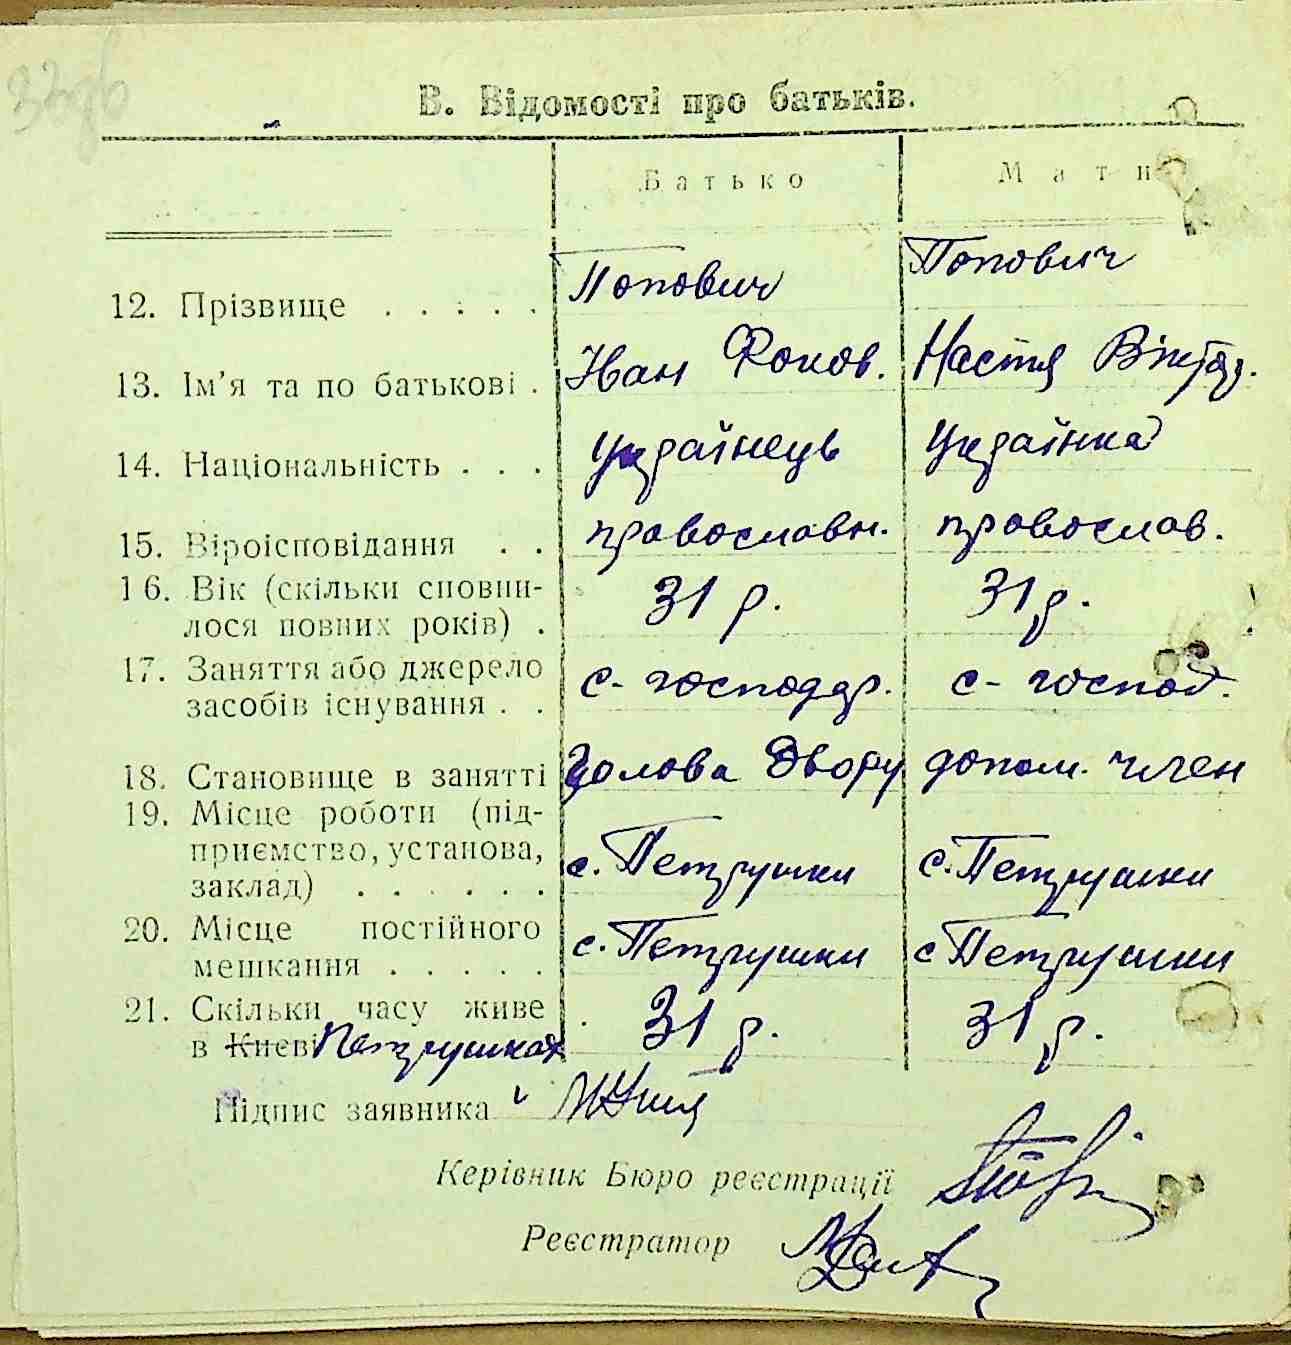 В. Відомості про батьків.
Батько Мати
12. Прізвище . . . . . Попович Попович
13. Ім'я та по батькові . Іван Фоков. Настя Віктор.
14. Національність . . . Українець Українка
15. Віроісповідання . . православн. православ.
16. Вік (скільки сповни-
лося повних років) . 31 р. 31 р.
17. Заняття або джерело
засобів існування . . с-господар. с-господ.
18. Становище в занятті Голова двору допом. член
19. Місце роботи (під-
приємство, установа,
заклад) . . . . . . с. Петрушки с. Петрушки
20. Місце постійного
мешкання . . . . . с. Петрушки с Петрушки
21. Скільки часу живе
в Києві Петрушках 31 р. 31 р.
Підпис заявника
Керівник Бюро реєстрації
Реєстратор